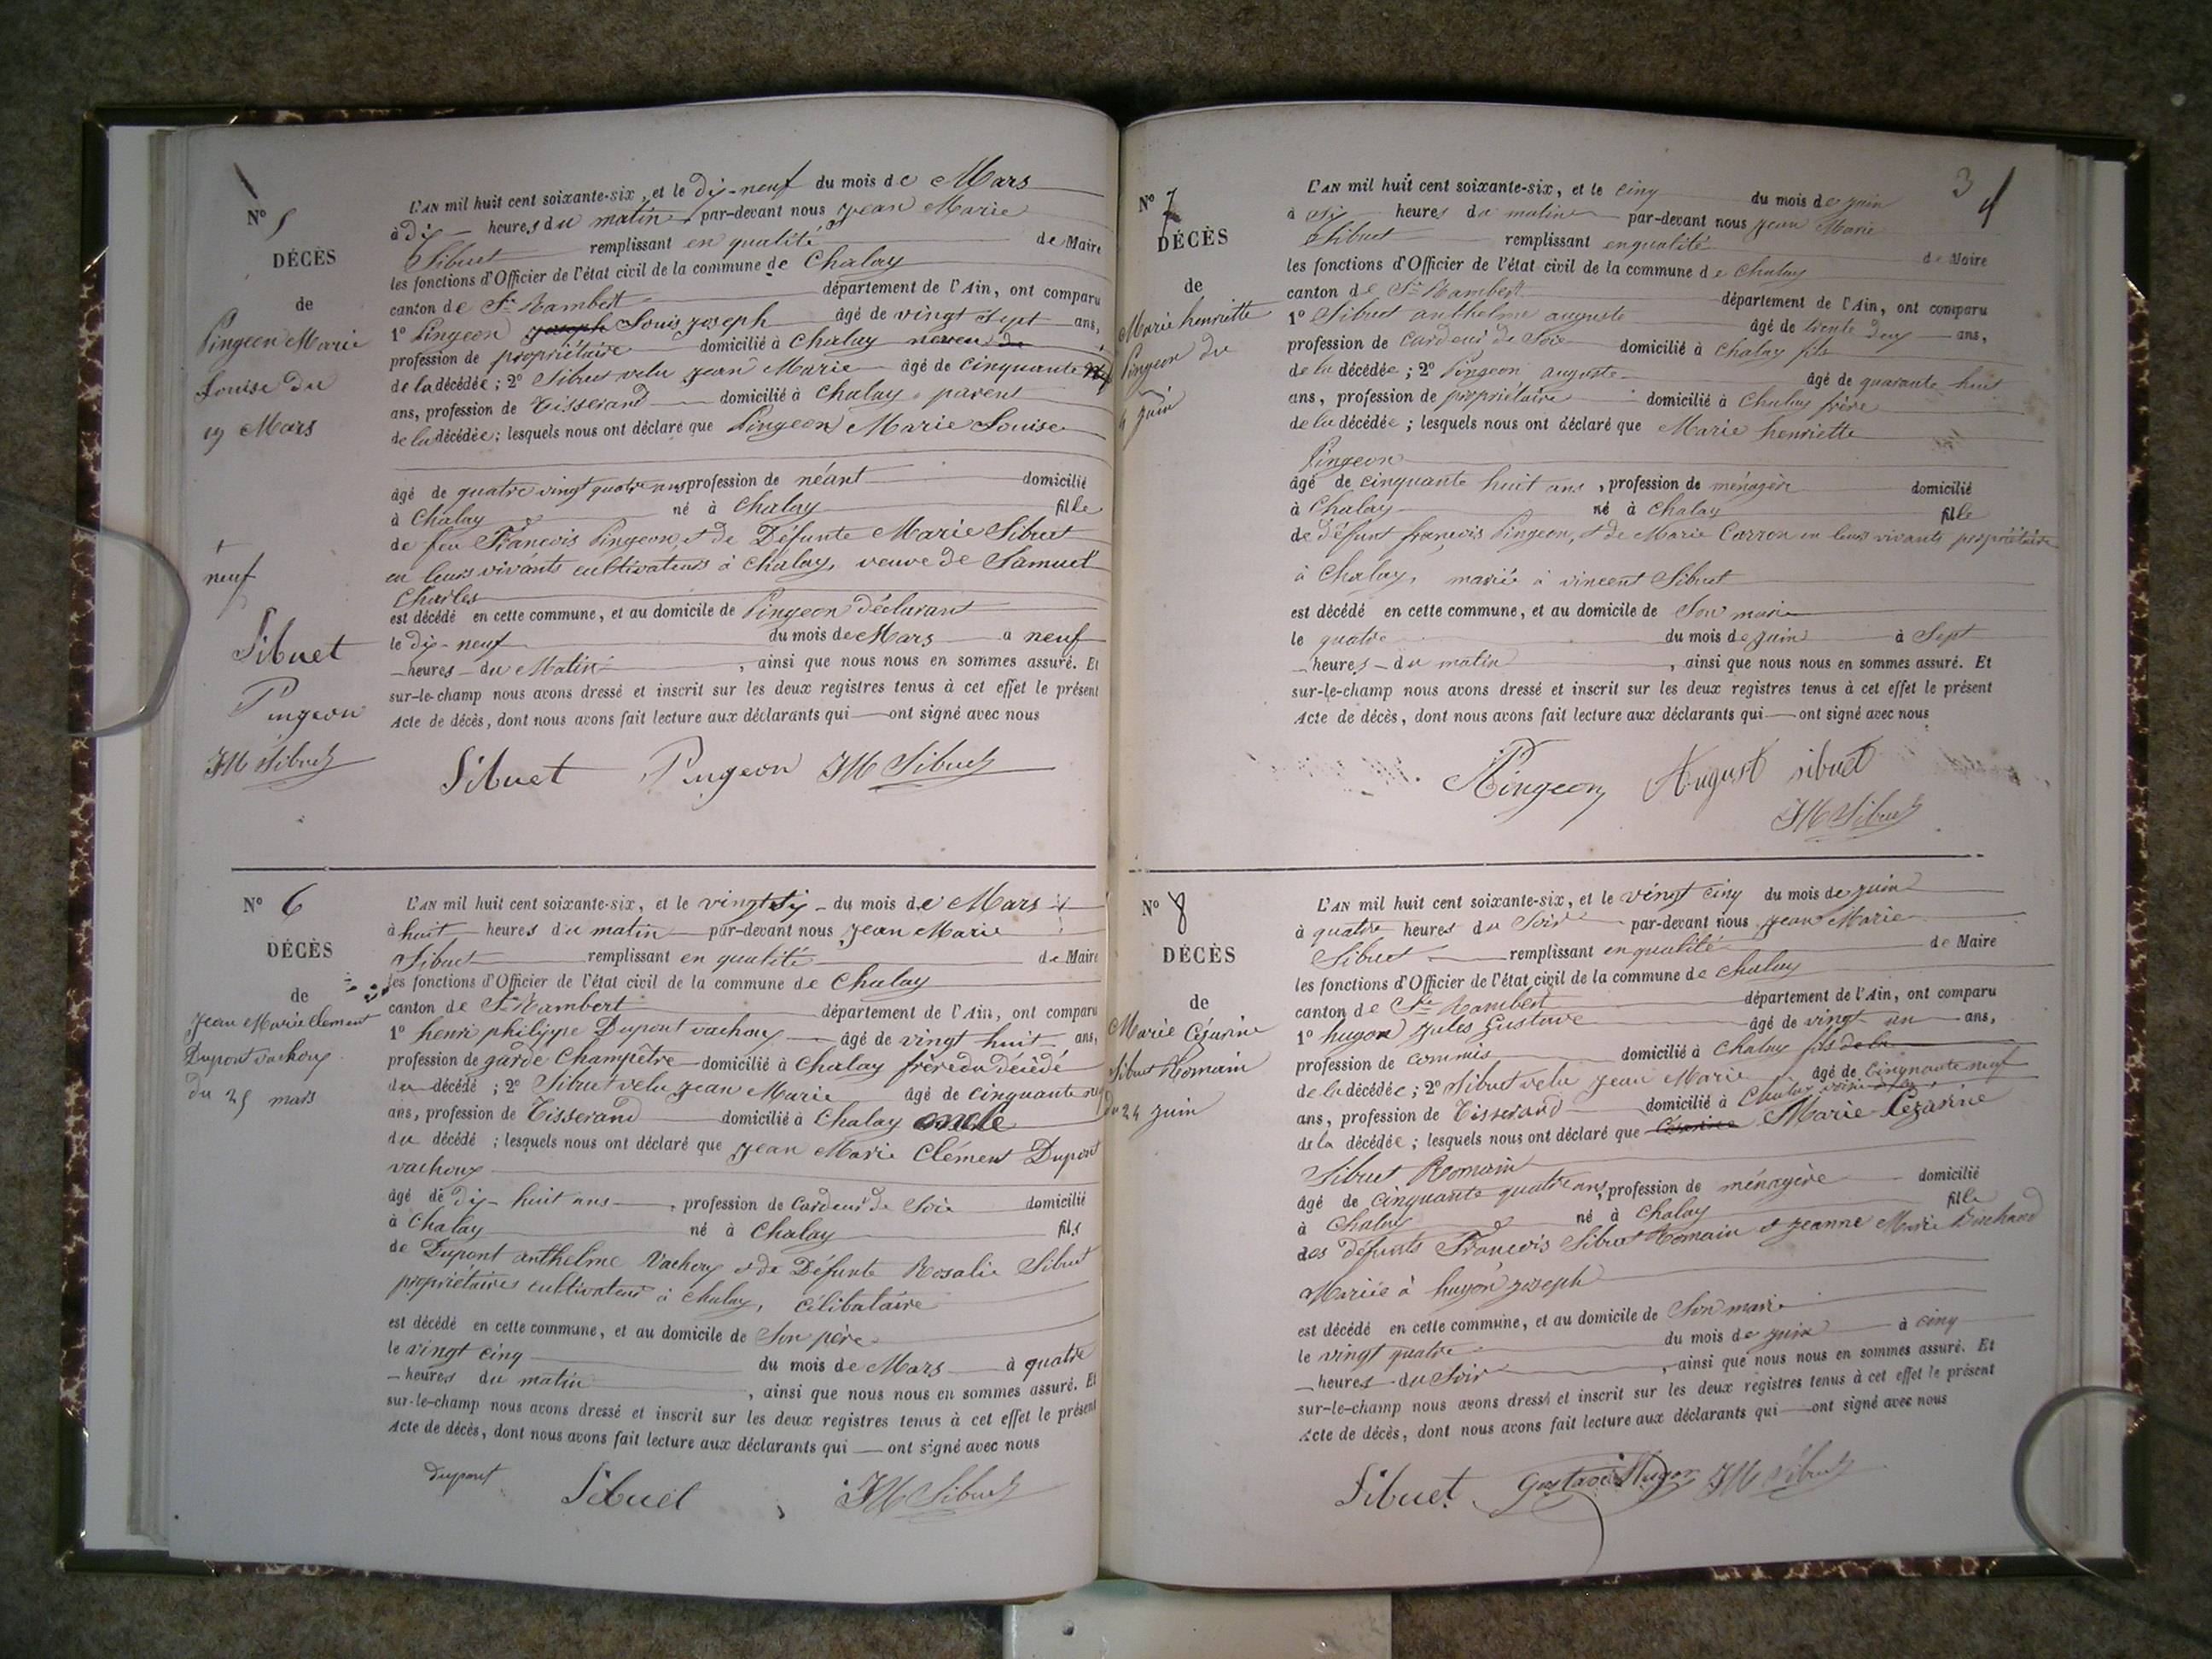 N° 5
DÉCÈS
de
Pingeon Marie
Louise du
19 Mars
L'AN mil huit cent soixante-six, et le dix-neuf du mois de Mars
à dix heures du matin par-devant nous Jean Marie
Sibuet remplissant en qualité de Maire
les fonctions d'Officier de l'état civil de la commune de Chaley
canton de St Rambert département de l'Ain, ont comparu
1° Pingeon Joseph Louis Joseph âgé de vingt sept ans,
profession de propriétaire domicilié à Chaley neveu de
de la décédée; 2° Sibuet velu Jean Marie âgé de cinquante
ans, profession de Tisserand domicilié à Chaley parent
de la décédée; lesquels nous ont déclaré que Pingeon Marie Louise
âgé de quatre vingt quatre ans profession de néant domicilié
à Chaley né à Chaley fille
de feu François Pingeon et de Défunte Marie Sibuet
en leurs vivants cultivateurs à Chaley, veuve de Samuel
Charles
est décédé en cette commune, et au domicile de Pingeon déclarant
le dix-neuf du mois de Mars à neuf
heures du Matin, ainsi que nous nous en sommes assuré. Et
sur-le-champ nous avons dressé et inscrit sur les deux registres tenus à cet effet le présent
Acte de décès, dont nous avons fait lecture aux déclarants qui ont signé avec nous
neuf
Sibuet
Pingeon
JM Sibuet
Sibuet Pingeon JM Sibuet
N° 6
DÉCÈS
de
Jean Marie Clement
Dupont vachoux
du 25 mars
L'AN mil huit cent soixante-six, et le vingt six du mois de Mars
à huit heures du matin par-devant nous Jean Marie
Sibuet remplissant en qualité de Maire
les fonctions d'Officier de l'état civil de la commune de Chaley
canton de St Rambert département de l'Ain, ont comparu
1° henri philippe Dupont vachoux âgé de vingt huit ans,
profession de garde Champêtre domicilié à Chaley frère du décédé
du décédé; 2° Sibuet velu Jean Marie âgé de cinquante
ans, profession de Tisserand domicilié à Chaley oncle
du décédé; lesquels nous ont déclaré que Jean Marie Clément Dupont
vachoux
âgé de dix-huit ans, profession de Cardeur de Soie domicilié
à Chaley né à Chaley fils
de Dupont anthelme Vachoux et de Défunte Rosalie Sibuet
propriétaires cultivateurs à Chaley, célibataire
est décédé en cette commune, et au domicile de Son père
le vingt cinq du mois de Mars à quatre
heures du matin, ainsi que nous nous en sommes assuré. Et
sur-le-champ nous avons dressé et inscrit sur les deux registres tenus à cet effet le présent
Acte de décès, dont nous avons fait lecture aux déclarants qui ont signé avec nous
dupont Sibuet JM Sibuet
3
N° 7
DÉCÈS
de
Marie henriette
Pingeon du
4 juin
L'AN mil huit cent soixante-six, et le cinq du mois de juin
à six heures du matin par-devant nous Jean Marie
Sibuet remplissant en qualité de Maire
les fonctions d'Officier de l'état civil de la commune de Chaley
canton de St Rambert département de l'Ain, ont comparu
1° Sibuet anthelme auguste âgé de trente deux ans,
profession de Cardeur de Soie domicilié à Chaley fils
de la décédée; 2° Pingeon auguste âgé de quarante huit
ans, profession de propriétaire domicilié à Chaley frère
de la décédée; lesquels nous ont déclaré que Marie henriette
Pingeon
âgé de cinquante huit ans, profession de ménagère domicilié
à Chaley né à Chaley fille
de défunt françois Pingeon, et de Marie Carron en leurs vivants propriétaires
à Chaley, mariée à vincent Sibuet
est décédé en cette commune, et au domicile de Son mari
le quatre du mois de juin à Sept
heures du matin, ainsi que nous nous en sommes assuré. Et
sur-le-champ nous avons dressé et inscrit sur les deux registres tenus à cet effet le présent
Acte de décès, dont nous avons fait lecture aux déclarants qui ont signé avec nous
Pingeon August sibuet
JM Sibuet
N° 8
DÉCÈS
de
Marie Cézarine
Sibuet Romain
du 24 juin
L'AN mil huit cent soixante-six, et le vingt cinq du mois de juin
à quatre heures du Soir par-devant nous Jean Marie
Sibuet remplissant en qualité de Maire
les fonctions d'Officier de l'état civil de la commune de Chaley
canton de St Rambert département de l'Ain, ont comparu
1° hugon Jules Gustave âgé de vingt un ans,
profession de commis domicilié à Chaley fils de la
de la décédée; 2° Sibuet velu Jean Marie âgé de Cinquante neuf
ans, profession de Tisserand domicilié à Chaley voisin
de la décédée; lesquels nous ont déclaré que Césarine Marie Cézarine
Sibuet Romain
âgé de cinquante quatre ans, profession de ménagère domicilié
à Chaley né à Chaley fille
des défunts François Sibuet Romain et Jeanne Marie
Mariée à hugon joseph
est décédé en cette commune, et au domicile de Son mari
le vingt quatre du mois de juin à cinq
heures du Soir, ainsi que nous nous en sommes assuré. Et
sur-le-champ nous avons dressé et inscrit sur les deux registres tenus à cet effet le présent
Acte de décès, dont nous avons fait lecture aux déclarants qui ont signé avec nous
Sibuet Gustave Hugon JM Sibuet